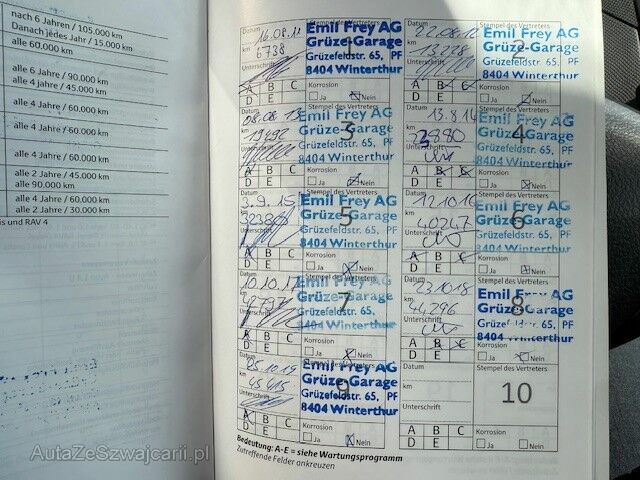 nach 6 Jahren / 105.000 km
Danach jedes Jahr / 15.000 km
alle 60.000 km
alle 6 Jahre / 90.000 km
alle 4 jahre / 45.000 km
alle 4 Jahre / 60.000 km
alle 4 Jahre / 60.000 km
alle 4 Jahre / 60.000 km
alle 2 Jahre / 45.000 km
alle 90.000 km
alle 4 Jahre / 60.000 km
alle 2 Jahre / 30.000 km
is und RAV 4
Datum
16.08.11
km
6738
Unterschrift
Emil Frey AG
Grüze-Garage
Grüzefeldstr. 65, PF
8404 Winterthur
1
A B C
D E
Korrosion
Ja Nein
Datum
22.08.12
Stempel des Vertreters
km
13228
Emil Frey AG
Grüze-Garage
Grüzefeldstr. 65, PF
8404 Winterthur
2
A B C
D E
Korrosion
Ja Nein
Datum
08.08.13
km
19492
Unterschrift
Stempel des Vertreters
Emil Frey AG
Grüze-Garage
Grüzefeldstr. 65, PF
8404 Winterthur
3
A B C
D E
Korrosion
Ja Nein
Datum
13.8.14
km
Unterschrift
Stempel des Vertreters
Emil Frey AG
Grüze-Garage
Grüzefeldstr. 65, PF
8404 Winterthur
4
A B C
D E
Korrosion
Ja Nein
Datum
3.9.15
Unterschrift
Stempel des Vertreters
Emil Frey AG
Grüze-Garage
Grüzefeldstr. 65, PF
8404 Winterthur
5
A B C
D E
Korrosion
Ja Nein
Datum
12.10.16
km
40247
Unterschrift
Stempel des Vertreters
Emil Frey AG
Grüze-Garage
Grüzefeldstr. 65, PF
8404 Winterthur
6
A B C
D E
Korrosion
Ja Nein
Datum
10.10.17
km
Unterschrift
Stempel des Vertreters
Emil Frey AG
Grüze-Garage
Grüzefeldstr. 65, PF
8404 Winterthur
7
A B C
D E
Korrosion
Ja Nein
Datum
23.10.18
km
44296
Unterschrift
Stempel des Vertreters
Emil Frey AG
Grüze-Garage
65, PF
Winterthur
8
A B C
D E
Korrosion
Ja Nein
Datum
25.10.19
km
45415
Unterschrift
Emil Frey AG
Grüze-Garage
Grüzefeldstr. 65, PF
8404 Winterthur
9
A B C
D E
Korrosion
Ja Nein
Datum
Stempel des Vertreters
km
Unterschrift
10
A B C
D E
Korrosion
Ja Nein
Bedeutung: A-E = siehe Wartungsprogramm
Zutreffende Felder ankreuzen
AutaZeSzwajcarii.pl